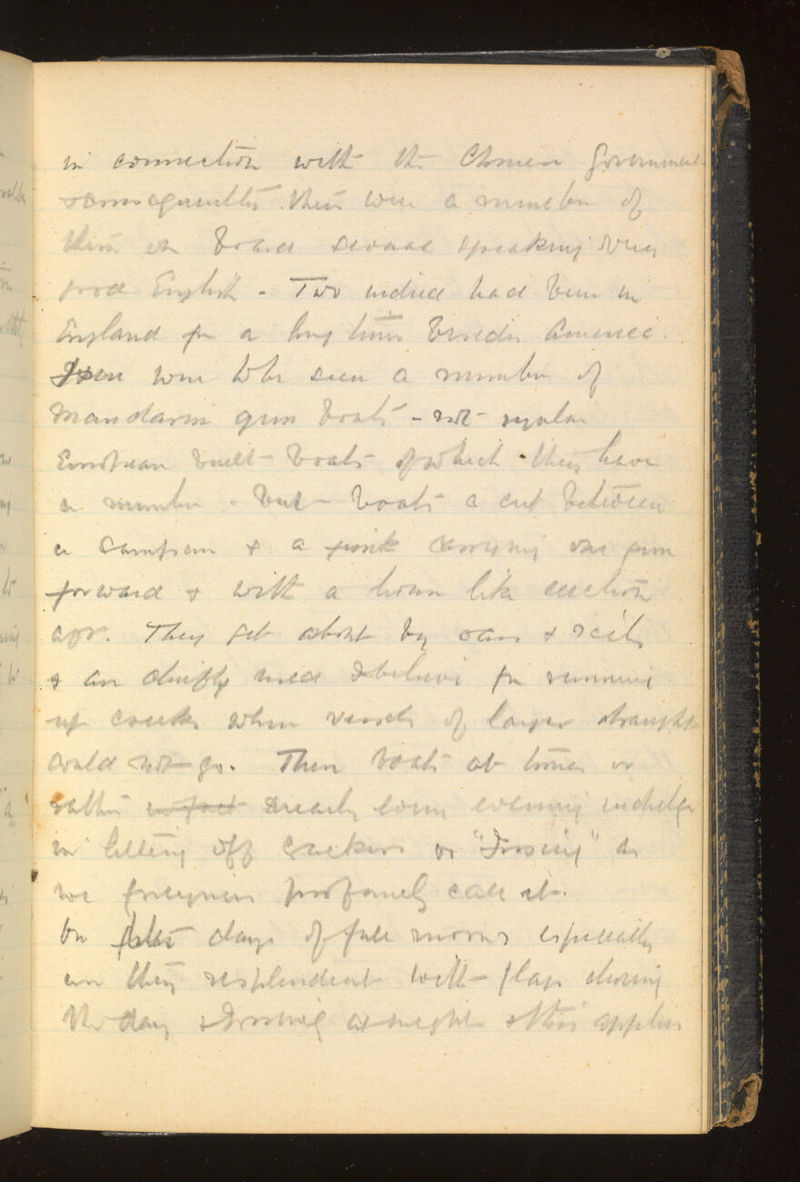 in connection with the Chinese Government
consequently there were a number of
them on board several speaking very
good English - Two indeed had been in
England for a long time besides America.
were to be seen a number of
Mandarin gun boats - not regular
European built boats of which they have
a number - but boats a cut between
a sampan & a junk carrying one gun
forward & with a house like erection
aft. They get about by oars & sails
& are chiefly used I believe for running
up creeks where vessels of larger draught
could not go. These boats at times or
rather in fact nearly every evening indulge
in letting off crackers or "Jossing" as
we foreigners profanely call it.
On days of full moons especially
are they resplendent with flags during
the day & Jossing at night & this applies